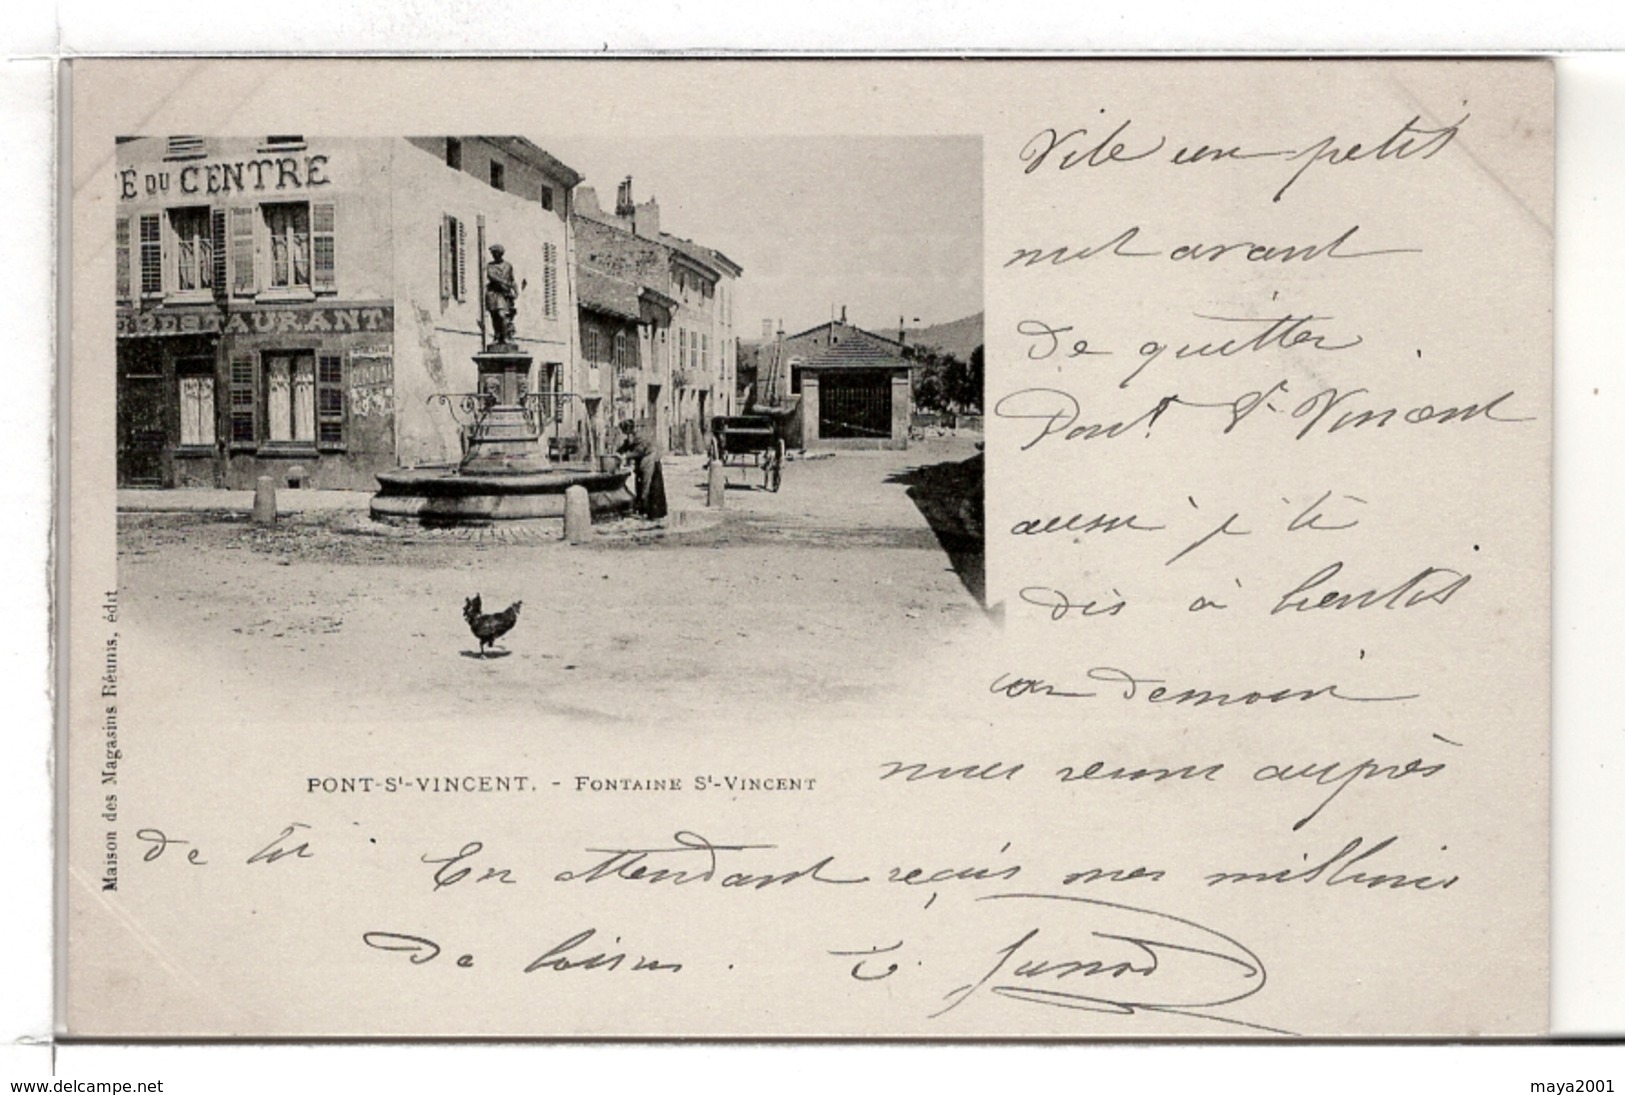 É DU CENTRE
RESTAURANT
Vite un petit
mot avant
de quitter
Pont St Vincent
aussi je te
dis à bientôt
car demain
nous serons auprès
de toi. En attendant reçois mes milliers
de baisers.
Maison des Magasins Réunis, édit
PONT-St-VINCENT. - FONTAINE St-VINCENT
www.delcampe.net
maya2001